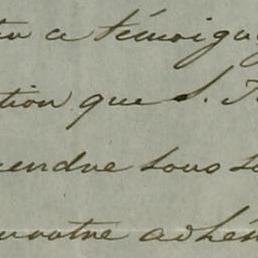 a témoig
tion que S.
endre sous s
votre adhé